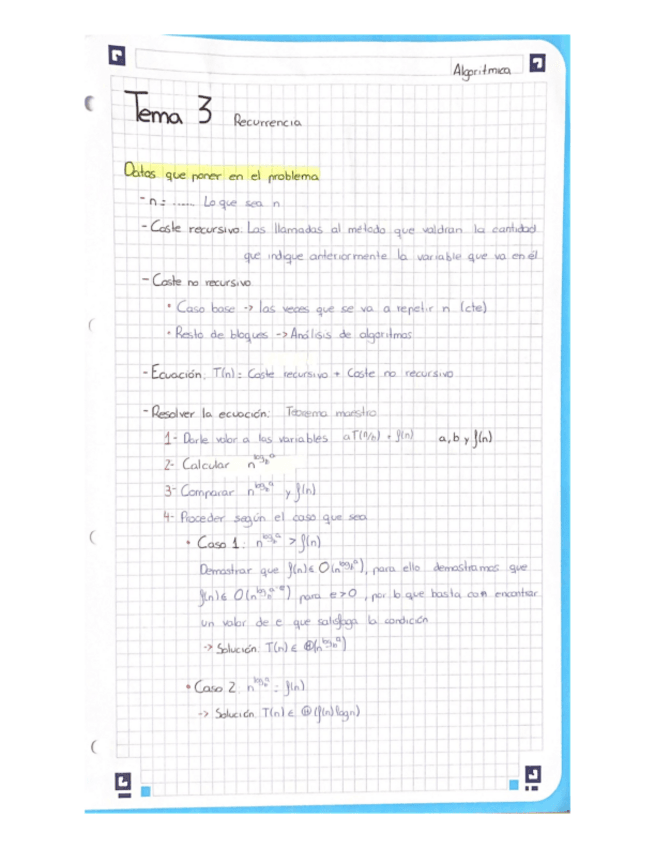 Algorítmica
Tema 3 Recurrencia
Datos que poner en el problema
- n = ..... Lo que sea n
- Coste recursivo. Las llamadas al método que valdrán la cantidad
que indique anteriormente la variable que va en él
- Coste no recursivo
• Caso base -> las veces que se va a repetir n (cte)
• Resto de bloques -> Análisis de algoritmos
- Ecuación: T(n) = Coste recursivo + Coste no recursivo
- Resolver la ecuación: Teorema maestro
1- Darle valor a las variables aT(n/b) + f(n) a, b y f(n)
2- Calcular n^log_b a
3- Comparar n^log_b a y f(n)
4- Proceder según el caso que sea
• Caso 1: n^log_b a > f(n)
Demostrar que f(n) ∈ O(n^log_b a), para ello demostramos que
f(n) ∈ O(n^log_b a-e) para e>0, por lo que basta con encontrar
un valor de e que satisfaga la condición
-> Solución T(n) ∈ Θ(n^log_b a)
• Caso 2 n^log_b a = f(n)
-> Solución T(n) ∈ Θ(f(n) log n)